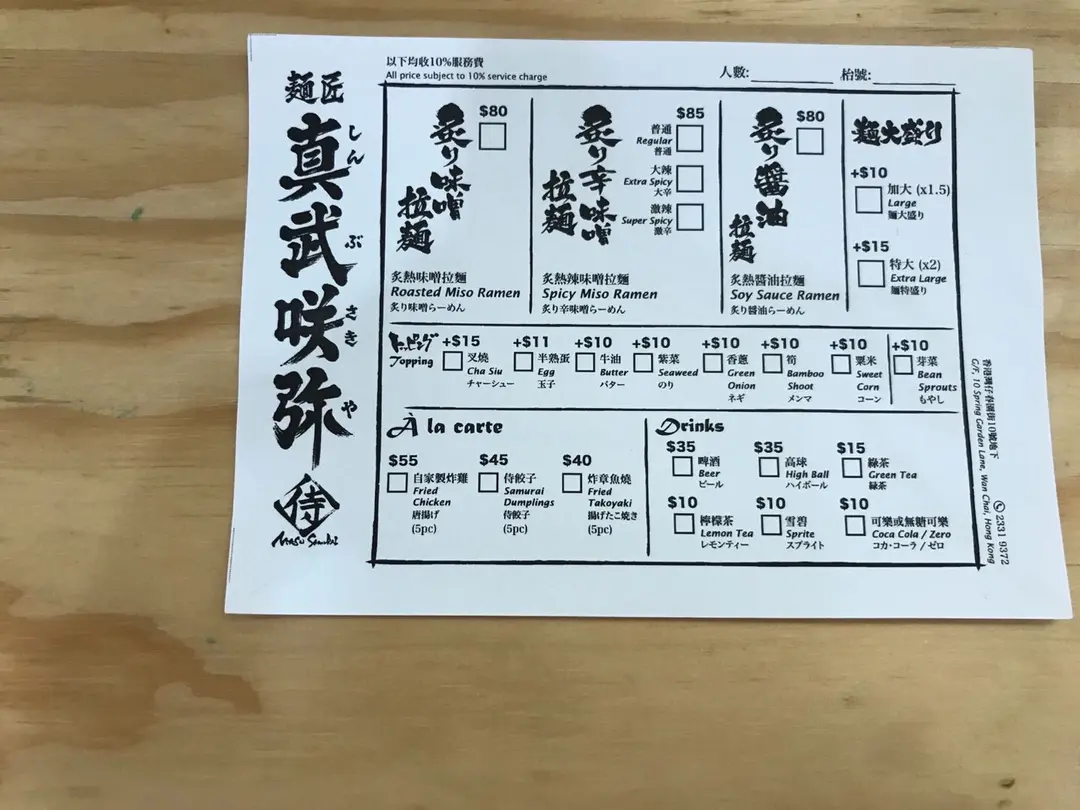 以下均收10%服務費
All price subject to 10% service charge
人數:
枱號:
麵匠
真武咲弥
しん
ぶ
さき
や
侍
炙り味噌
拉麺
$80
炙熱味噌拉麵
Roasted Miso Ramen
炙り味噌らーめん
炙り辛味噌
拉麺
$85
普通
Regular
普通
大辣
Extra Spicy
大辛
激辣
Super Spicy
激辛
炙熱辣味噌拉麵
Spicy Miso Ramen
炙り辛味噌らーめん
炙り醬油
拉麺
$80
炙熱醬油拉麵
Soy Sauce Ramen
炙り醬油らーめん
麺大盛り
+$10
加大 (x1.5)
Large
麺大盛り
+$15
特大 (x2)
Extra Large
麺特盛り
トッピング
Topping
+$15
叉燒
Cha Siu
チャーシュー
+$11
半熟蛋
Egg
玉子
+$10
牛油
Butter
バター
+$10
紫菜
Seaweed
のり
+$10
香蔥
Green
Onion
ネギ
+$10
筍
Bamboo
Shoot
メンマ
+$10
粟米
Sweet
Corn
コーン
+$10
芽菜
Bean
Sprouts
もやし
À la carte
$55
自家製炸雞
Fried
Chicken
唐揚げ
(5pc)
$45
侍餃子
Samurai
Dumplings
侍餃子
(5pc)
$40
炸章魚燒
Fried
Takoyaki
揚げたこ焼き
(5pc)
Drinks
$35
啤酒
Beer
ビール
$35
高球
High Ball
ハイボール
$15
綠茶
Green Tea
緑茶
$10
檸檬茶
Lemon Tea
レモンティー
$10
雪碧
Sprite
スプライト
$10
可樂或無糖可樂
Coca Cola / Zero
コカ・コーラ / ゼロ
香港灣仔春園街10號地下
G/F, 10 Spring Garden Lane, Wan Chai, Hong Kong
2331 9372